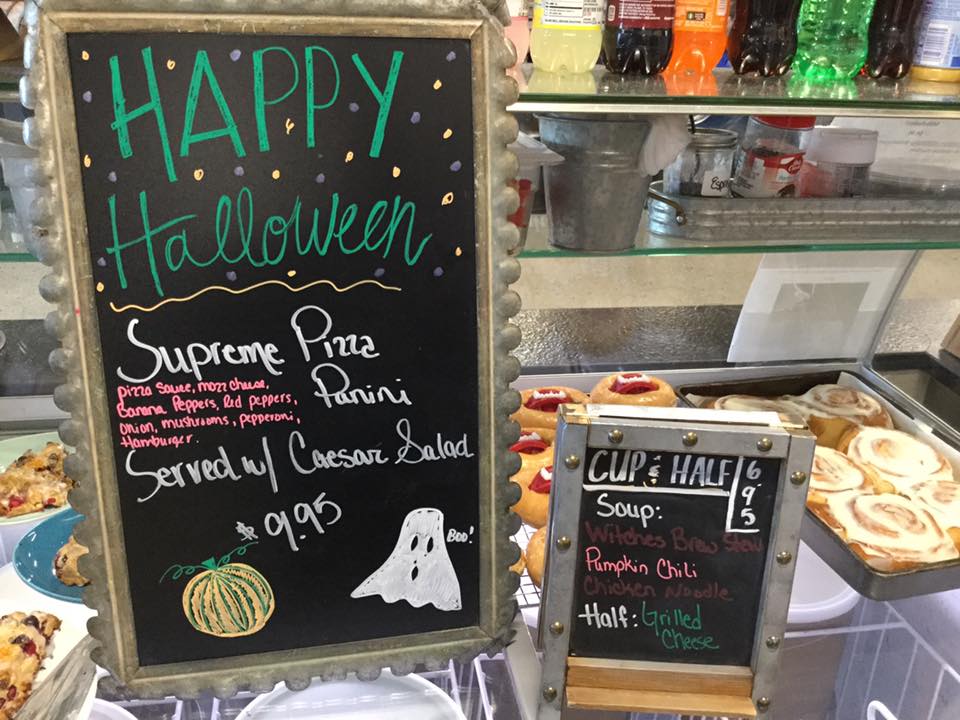 HAPPY
Halloween
Supreme Pizza
Panini
pizza sauce, mozz cheese,
Banana Peppers, Red peppers,
Onion, mushrooms, pepperoni,
Hamburger.
Served w/ Caesar Salad
$9.95
BOO!
CUP & HALF 6.95
Soup:
Witches Brew Stew
Pumpkin Chili
Chicken Noodle
Half: Grilled
Cheese